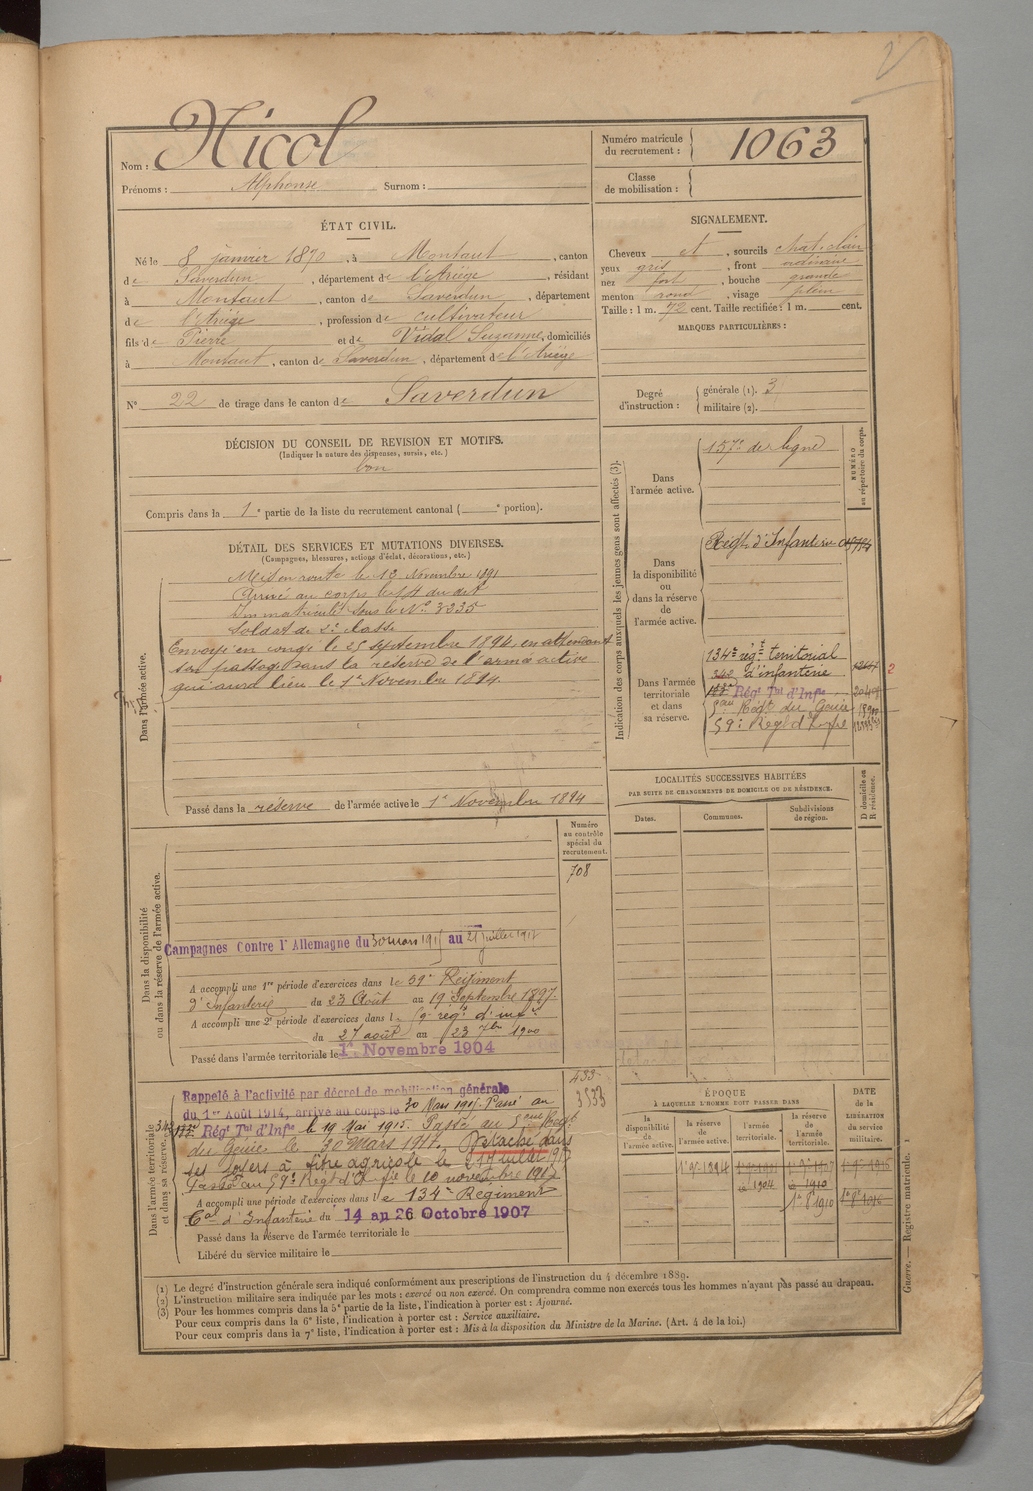 Nom : Nicol
Prénoms : Alphonse Surnom :
Numéro matricule du recrutement : 1063
Classe de mobilisation :
ÉTAT CIVIL.
Né le 8 janvier 1870, à Montaut, canton
de Saverdun, département de l'Ariège, résidant
à Montaut, canton de Saverdun, département
de l'Ariège, profession de cultivateur
fils de Pierre et de Vidal Suzanne, domiciliés
à Montaut, canton de Saverdun, département de l'Ariège
N° 22 de tirage dans le canton de Saverdun
SIGNALEMENT.
Cheveux et, sourcils chat. clair
yeux gris, front ordinaire
nez fort, bouche grande
menton rond, visage plein
Taille : 1 m. 72 cent. Taille rectifiée : 1 m. cent.
MARQUES PARTICULIÈRES :
Degré d'instruction : générale (1). 3
militaire (2).
DÉCISION DU CONSEIL DE REVISION ET MOTIFS.
(Indiquer la nature des dispenses, sursis, etc.)
bon
Compris dans la 1e partie de la liste du recrutement cantonal ( e portion).
DÉTAIL DES SERVICES ET MUTATIONS DIVERSES.
(Campagnes, blessures, actions d'éclat, décorations, etc.)
Dans l'armée active.
Mis en route le 13 Novembre 1891
Arrivé au corps le dt du dt
Immatriculé sous le N° 3335
Soldat de 2e classe
Envoyé en congé le 25 septembre 1894, en attendant
son passage dans la réserve de l'armée active
qui aura lieu le 1er Novembre 1894
Passé dans la réserve de l'armée active le 1er Novembre 1894
Indication des corps auxquels les jeunes gens sont affectés (3).
NUMÉRO au répertoire du corps.
Dans l'armée active.
157e de ligne
Dans la disponibilité ou dans la réserve de l'armée active.
Régt d'Infanterie
Dans l'armée territoriale et dans sa réserve.
134e régt territorial
d'infanterie
Régt Tal d'Infie
5eme Régt du Génie
59e Régt d'Infie
2
LOCALITÉS SUCCESSIVES HABITÉES
PAR SUITE DE CHANGEMENTS DE DOMICILE OU DE RÉSIDENCE.
Dates. Communes. Subdivisions de région. D domicile ou R résidence.
Dans la disponibilité ou dans la réserve de l'armée active.
Numéro au contrôle spécial du recrutement.
708
Campagnes Contre l'Allemagne du 30 mars 1915 au 21 juillet 1917
A accompli une 1re période d'exercices dans le 59e Régiment
d'Infanterie du 23 Août au 19 Septembre 1897.
A accompli une 2e période d'exercices dans le 59e régt d'infie
du 27 août au 23 7bre 1900
Passé dans l'armée territoriale le 1er Novembre 1904
Dans l'armée territoriale et dans sa réserve.
433
3533
Rappelé à l'activité par décret de mobilisation générale
du 1er Août 1914, arrivé au corps le 30 Mars 1915. Passé au
Régt Tal d'Infie le 19 Mai 1915. Passé au 5eme Régt
du Génie le 30 Mars 1917. Détaché dans
ses foyers à titre agricole le 21 Juillet 1917
Passé au 59e Régt d'Infie le 10 novembre 1917
A accompli une période d'exercices dans le 134e Régiment
Tal d'Infanterie du 14 au 26 Octobre 1907
Passé dans la réserve de l'armée territoriale le
Libéré du service militaire le
ÉPOQUE
À LAQUELLE L'HOMME DOIT PASSER DANS
DATE de la LIBÉRATION du service militaire.
la disponibilité de l'armée active. la réserve de l'armée active. l'armée territoriale. la réserve de l'armée territoriale.
1er 9bre 1894
1904
1910
1er 8bre 1910
(1) Le degré d'instruction générale sera indiqué conformément aux prescriptions de l'instruction du 4 décembre 1889.
(2) L'instruction militaire sera indiquée par les mots : exercé ou non exercé. On comprendra comme non exercés tous les hommes n'ayant pas passé au drapeau.
(3) Pour les hommes compris dans la 5e partie de la liste, l'indication à porter est : Ajourné.
Pour ceux compris dans la 6e liste, l'indication à porter est : Service auxiliaire.
Pour ceux compris dans la 7e liste, l'indication à porter est : Mis à la disposition du Ministre de la Marine. (Art. 4 de la loi.)
Guerre. — Registre matricule. 1